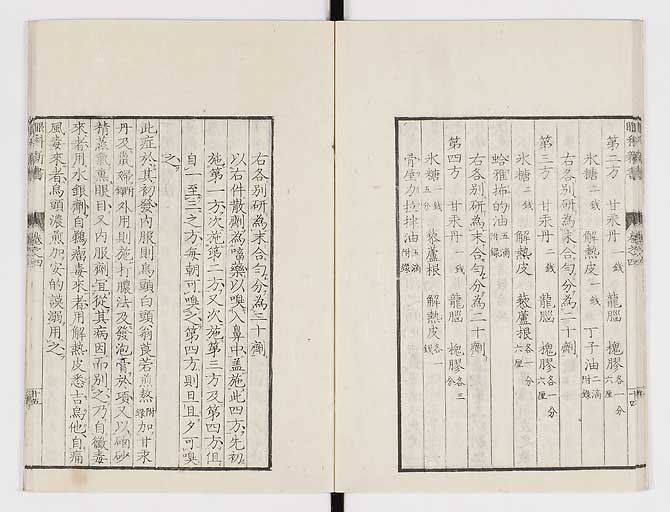 眼科新書
第二方 甘汞丹一銭 龍腦 槐膠各一分六厘
氷糖二銭 解熱皮一銭 丁子油二滴附錄
右各別研為末合勻分為二十劑
第三方 甘汞丹一銭 龍腦 槐膠各一分六厘
氷糖二銭 解熱皮 藜蘆根各一分六厘
蛤猚拂的油五滴附錄
右各別研為末合勻分為二十劑
第四方 甘汞丹一銭 龍腦 槐膠各三分
氷糖一銭五分 藜蘆根 解熱皮各一銭
骨屋力拉排油五滴附錄
右各別研為末合勻分為三十劑
以右件散劑為嚏藥以嗅入鼻中蓋施此四方先初
施第一方次施第二方又次施第三方及第四方但
自一至三之方每朝可嗅之第四方則日且夕可嗅
之
此症於其初發內服則烏頭白頭翁莨若煎熬附錄加甘汞
丹及外用則施打膿法及發泡膏於項又以硇砂
精蒸氣熏眼目又內服劑宜從其病因而別之乃自黴毒
來者用水銀劑自鶴瘤毒來者用解熱皮悉吉烏他自痛
風毒來者烏頭濃煎加安的謨溺用之
眼科新書